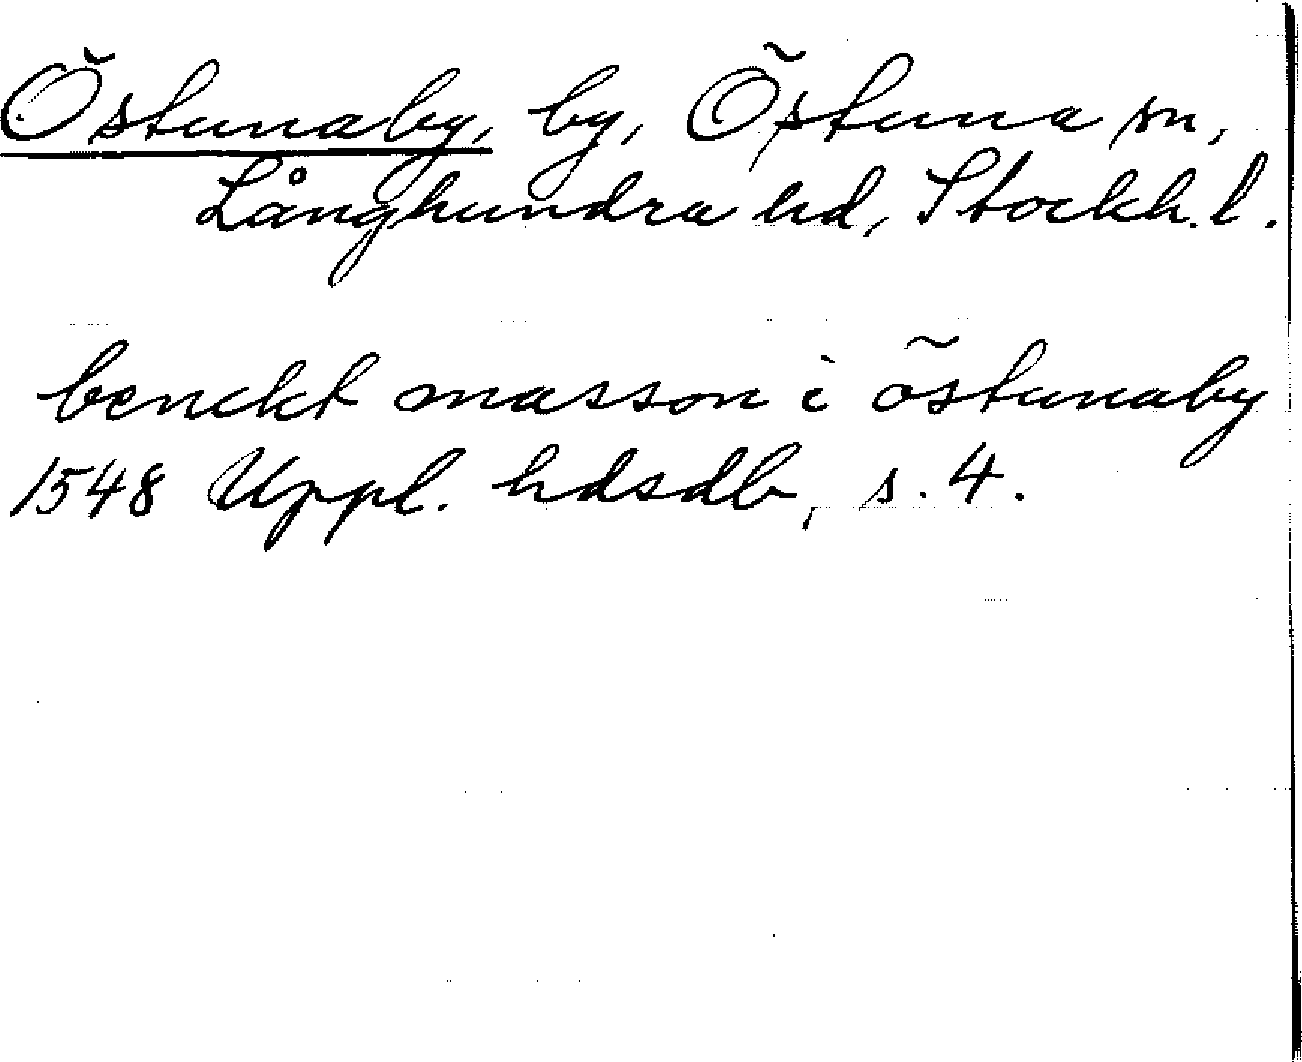 Östunaby, by, Östuna sn,
Långhundra hd, Stockh. l.
benckt masson i östunaby
1548 Uppl. hdsdb, s. 4.